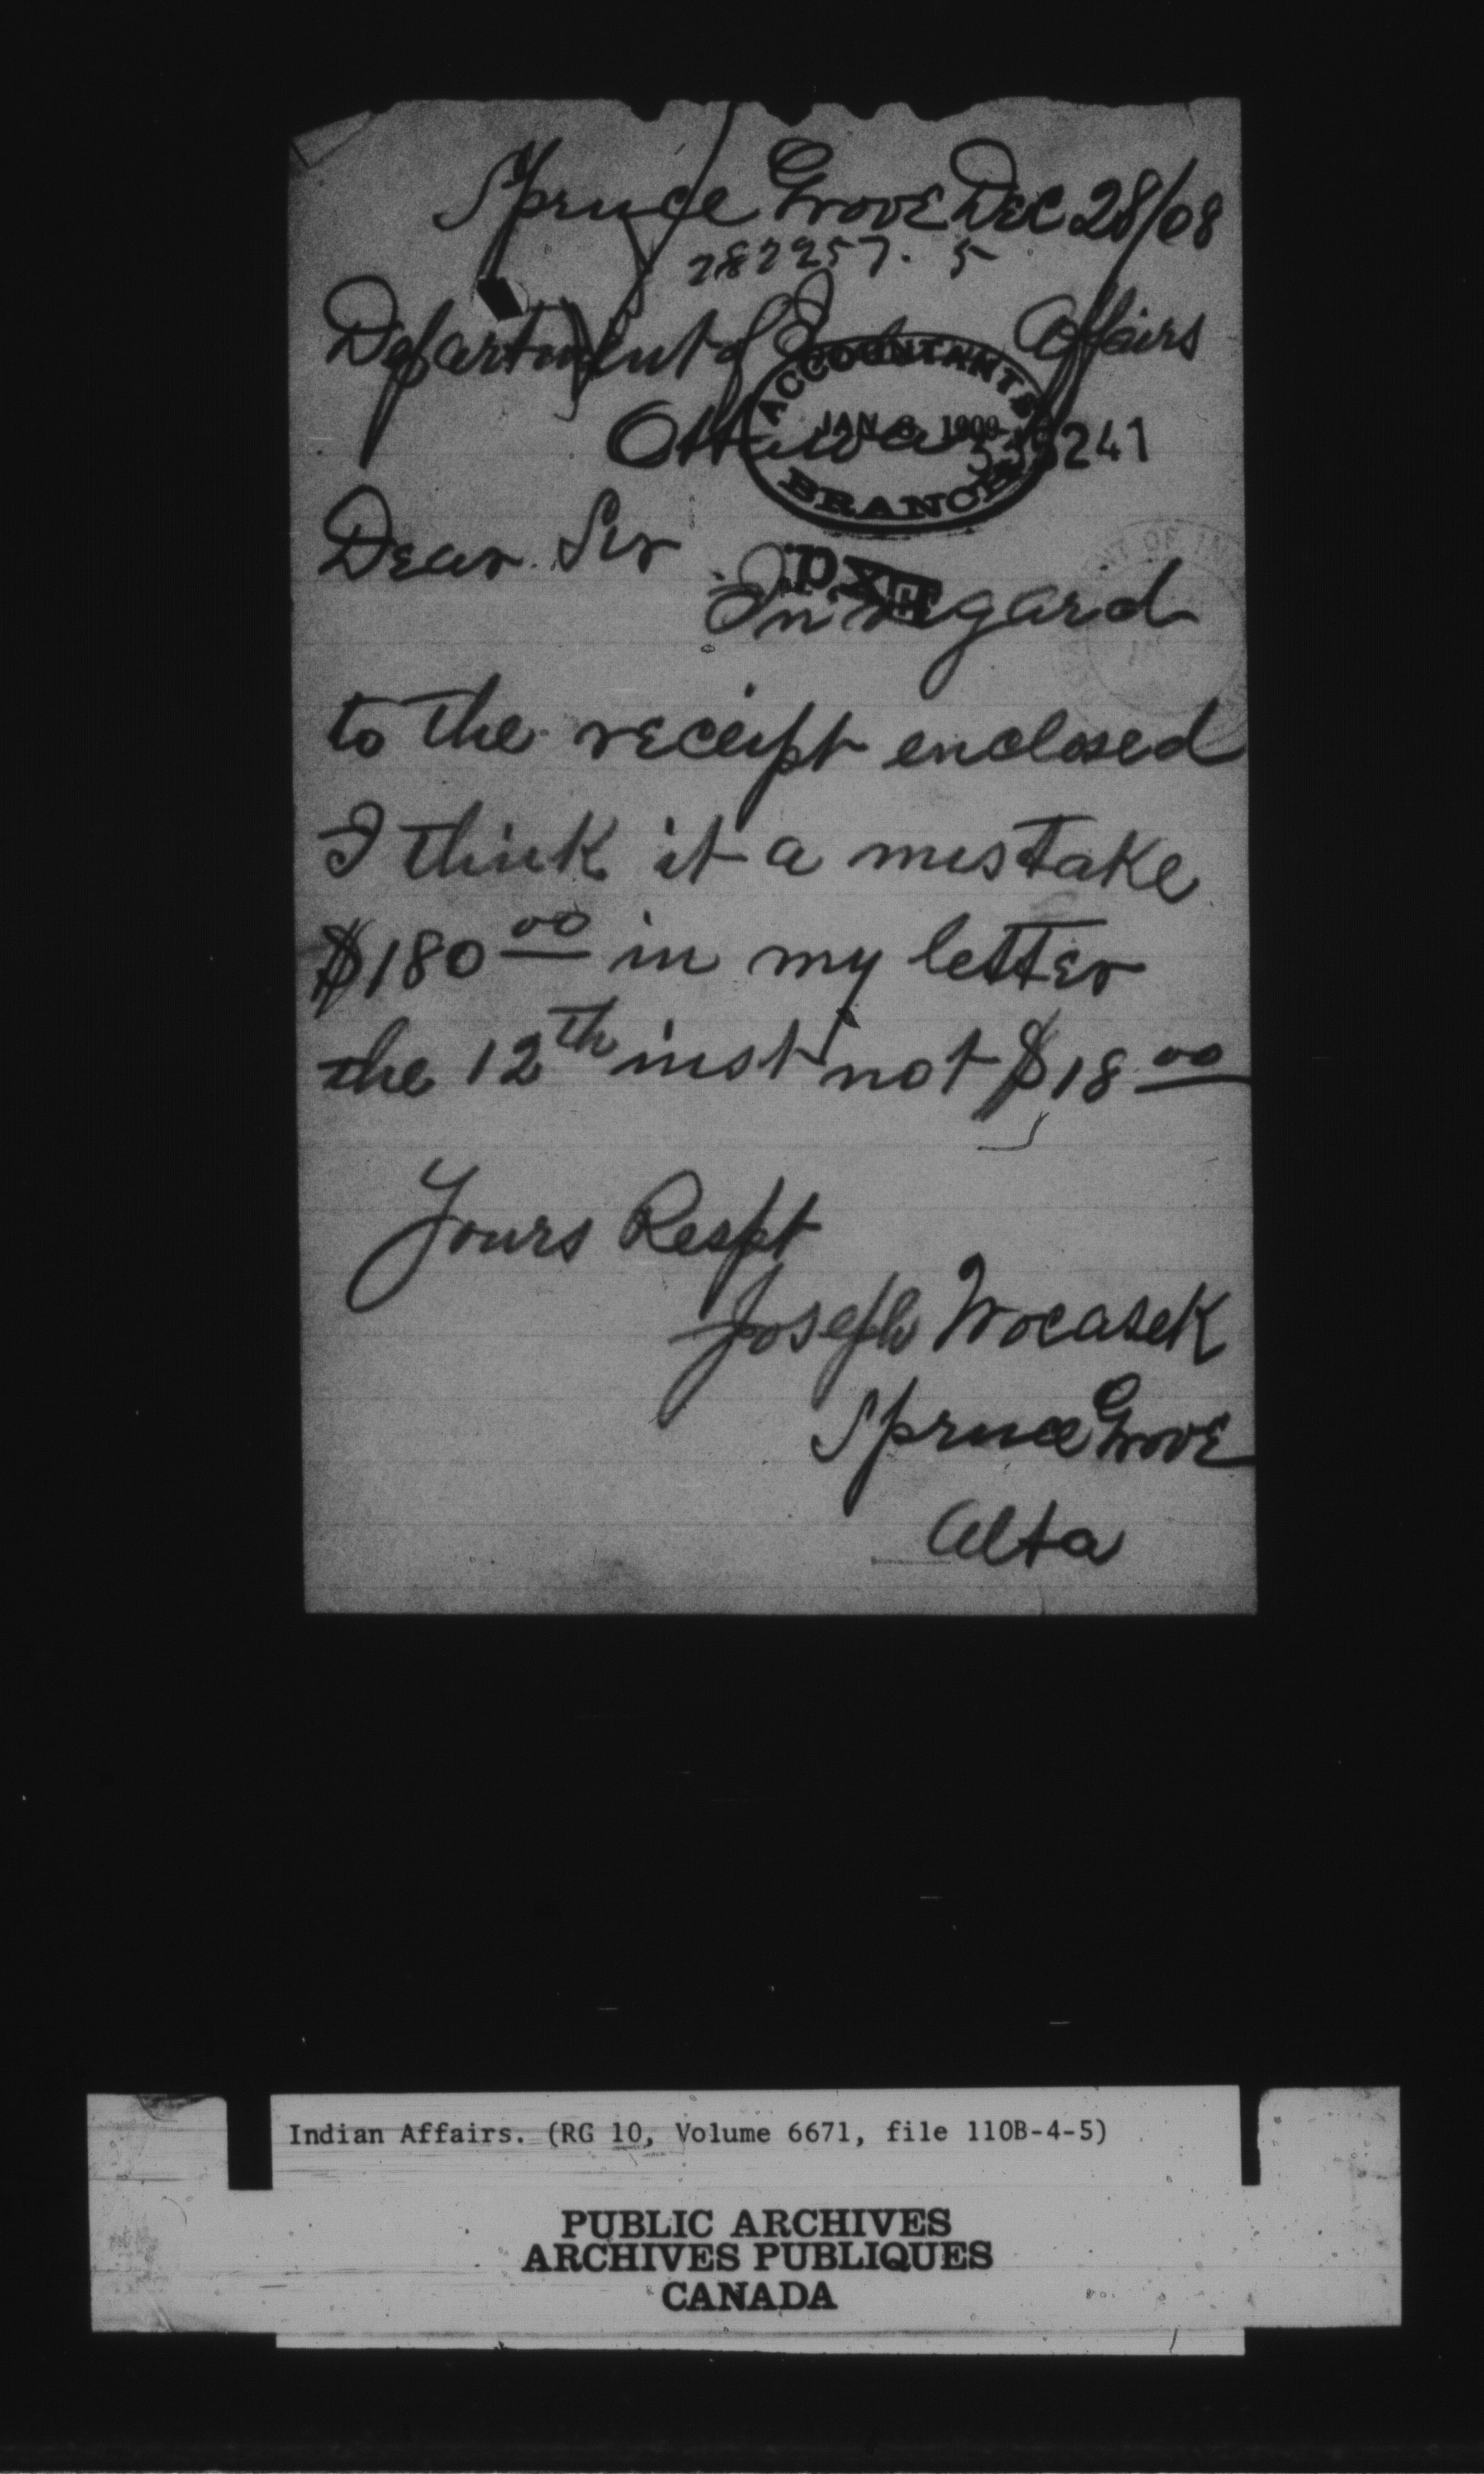 Spruce Grove Dec 28/08
282257. 5
Department of Affairs
ACCOUNTANT'S
Ottawa
JAN 1909
BRANCH
Dear Sir
In regard
to the receipt enclosed
I think it a mistake
$180 00 in my letter
the 12th inst not $18 00
Yours Respt
Joseph Wocasek
Spruce Grove
Alta
Indian Affairs. (RG 10, Volume 6671, file 110B-4-5)
PUBLIC ARCHIVES
ARCHIVES PUBLIQUES
CANADA